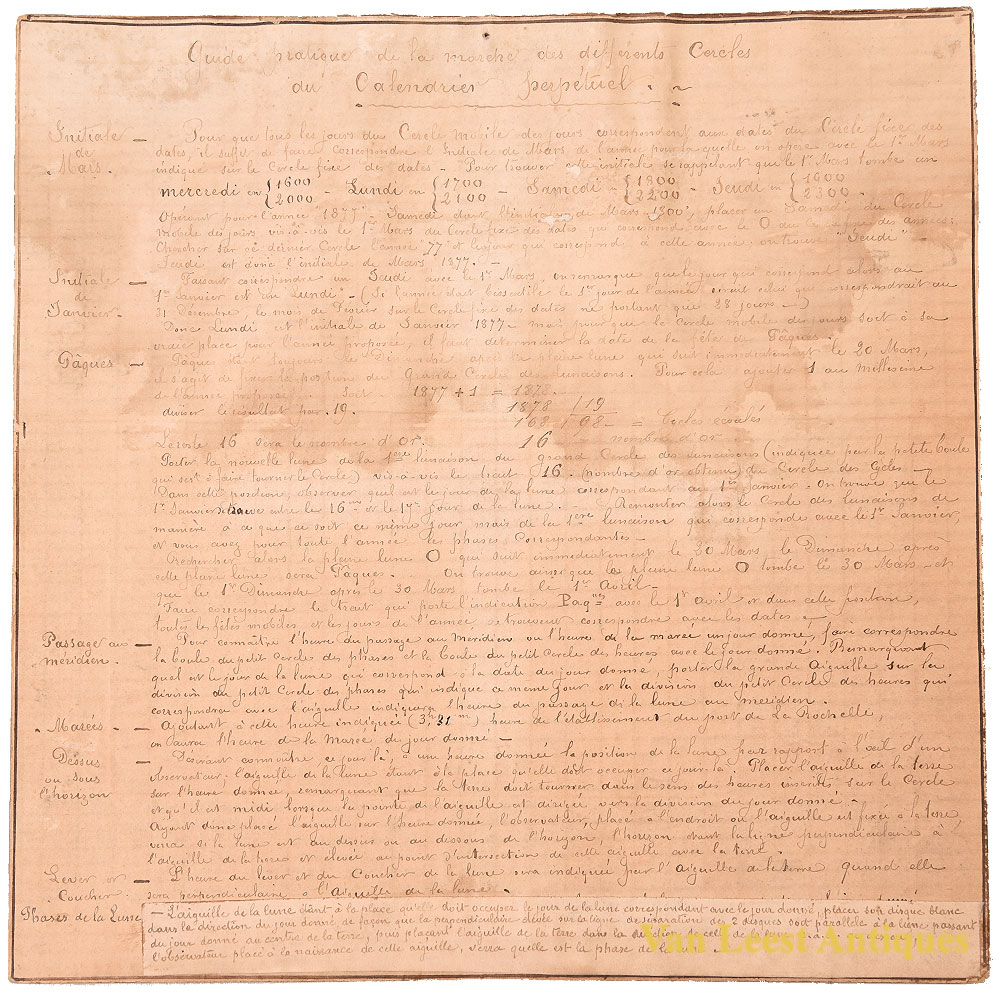 Guide pratique de la marche des différents Cercles
du Calendrier perpétuel.
Initiale de Mars. — Pour que tous les jours du Cercle mobile des jours correspondent aux dates du Cercle fixe des
dates, il suffit de faire correspondre l'Initiale de Mars de l'année pour laquelle on opère avec le 1er Mars
indiqué sur le Cercle fixe des dates. Pour trouver cette initiale se rappelant que le 1er Mars tombe un
mercredi en {1600 2000 - Lundi en {1700 2100 - Samedi {1800 2200 - Jeudi en {1900 2300.
Opérant pour l'année "1877" Samedi étant l'initiale de Mars 1800, placer un Samedi du Cercle
mobile des jours vis-à-vis le 1er Mars du Cercle fixe des dates qui correspond avec le 0 du des années
Chercher sur ce dernier Cercle l'année "77" et le jour qui correspond à cette année on trouve "Jeudi"
Jeudi est donc l'initiale de Mars 1877. —
Initiale de Janvier — Faisant correspondre un Jeudi avec le 1er Mars, on remarque que le jour qui correspond alors au
1er Janvier est un Lundi. (Si l'année était bissextile le 1er jour de l'année serait celui qui correspondrait au
31 Décembre, le mois de Février sur le Cercle fixe des dates ne portant que 28 jours.)
Donc Lundi est l'initiale de Janvier 1877 mais pour que le cercle mobile des jours soit à sa
vraie place pour l'année proposée, il faut déterminer la date de la fête de Pâques.
Pâques — Pâques est toujours le Dimanche après la pleine lune qui suit immédiatement le 20 Mars,
il s'agit de fixer la position du Grand Cercle des lunaisons. Pour cela ajouter 1 au Millésime
de l'année proposée. Soit 1877 + 1 = 1878.
diviser le résultat par 19. 1878 | 19
168 | 98 = Cycles écoulés
Le reste 16 sera le nombre d'or. 16 nombre d'or
Porter la nouvelle lune de la 1ère lunaison du grand Cercle des lunaisons (indiquée par la petite boule
qui sert à faire tourner le Cercle) vis-à-vis le trait 16 (nombre d'or obtenu) du Cercle des Cycles —
Dans cette position, observer quel est le jour de la lune correspondant au 1er Janvier. On trouve que le
1er Janvier se trouve entre le 16me et le 17me jour de la lune. Remonter alors le Cercle des lunaisons de
manière à ce que ce soit ce même jour, mais de la 1ère lunaison qui corresponde avec le 1er Janvier,
et vous avez pour toute l'année les phases correspondantes —
Rechercher alors la pleine lune O qui suit immédiatement le 20 Mars, le Dimanche après
cette pleine lune sera Pâques. On trouve ainsi que la pleine lune O tombe le 30 Mars et
que le 1er Dimanche après le 30 Mars tombe le 1er Avril —
Faire correspondre le trait qui porte l'indication Paques avec le 1er avril et dans cette position,
toutes les fêtes mobiles et les jours de l'année se trouvent correspondre avec les dates. —
Passage au méridien. — Pour connaître l'heure du passage au Méridien ou l'heure de la marée un jour donné, faire correspondre
la boule du petit cercle des phases et la boule du petit Cercle des heures avec le jour donné. Remarquant
quel est le jour de la lune qui correspond à la date du jour donné, porter la grande aiguille sur la
division du petit Cercle des phases qui indique ce même jour et la division du petit Cercle des heures qui
correspondra avec l'aiguille indiquera l'heure du passage de la lune au méridien.
Marées — Ajoutant à cette heure indiquée (3h 31m) heure de l'établissement du port de La Rochelle,
on aura l'heure de la Marée du jour donné —
Dessus ou sous l'horizon — Désirant connaître ce jour là, à une heure donnée la position de la lune par rapport à l'œil d'un
observateur l'aiguille de la lune étant à la place qu'elle doit occuper ce jour-là. Placer l'aiguille de la terre
sur l'heure donnée, remarquant que la terre doit tourner dans le sens des heures inscrites sur le Cercle
et qu'il est midi lorsque la pointe de l'aiguille est dirigée vers la division du jour donné. —
Ayant donc placé l'aiguille sur l'heure donnée, l'observateur, placé à l'endroit où l'aiguille est fixée à la terre,
verra si la lune est au dessus ou au dessous de l'horizon, l'horizon étant la ligne perpendiculaire à
l'aiguille de la terre et élevée au point d'intersection de cette aiguille avec la terre.
Lever et Coucher — L'heure du lever et du Coucher de la lune sera indiquée par l'aiguille de la terre quand elle
sera perpendiculaire à l'aiguille de la lune.
Phases de la Lune — L'aiguille de la lune étant à la place qu'elle doit occuper le jour de la lune correspondant avec le jour donné, placer son disque blanc
dans la direction du jour donné de façon que la perpendiculaire élevée sur la ligne de séparations des 2 disques soit parallèle à la ligne passant
du jour donné au centre de la terre, puis plaçant l'aiguille de la terre dans la direction de celle de la lune
l'observateur placé à la naissance de cette aiguille, verra quelle est la phase de la
Van Leest Antiques